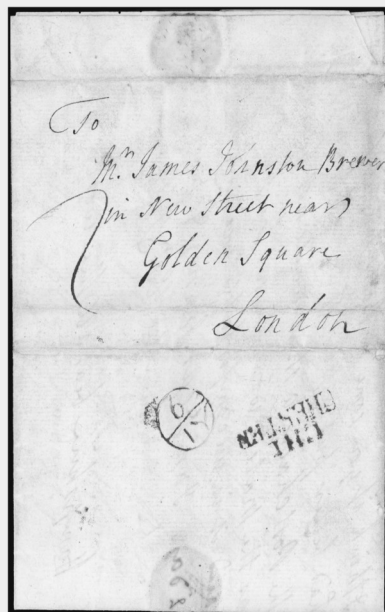 To
Mr. James Johnston Brewer
in New Street near
Golden Square
London
9
IA
CHI
CHESTER